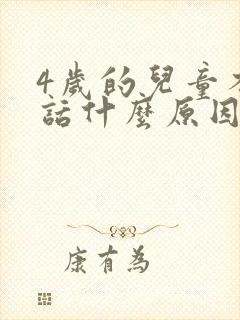 4歲的兒童不
話什麼原因
康有為